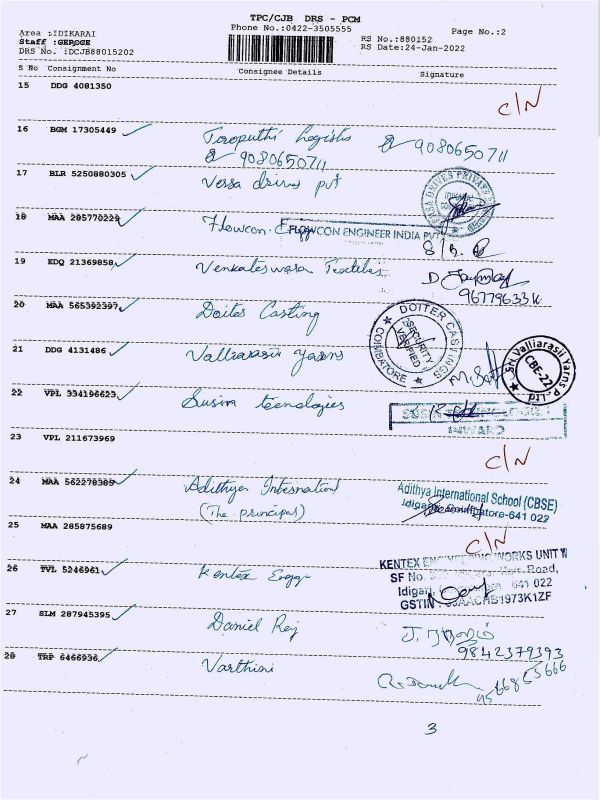 TPC/CJB DRS - PCM
Area :IDIKARAI
Phone No.:0422-3505555
Page No.:2
Staff :GEROGE
RS No.:880152
DRS No. :DCJB88015202
RS Date:24-Jan-2022
S No Consignment No Consignee Details Signature
15 DDG 4081350 C/N
16 BGM 17305449 ✓ Logistis 9080650711
9080650711
17 BLR 5250880305 ✓ Versa drives pvt
18 MAA 285770229 ✓ Flowcon Engg FLOWCON ENGINEER INDIA PVT
19 EDQ 21369858 ✓ Venkateswara Textiles
20 MAA 565392397 ✓ Doites Casting DOITER CASTINGS SECURITY VERIFIED COIMBATORE
21 DDG 4131486 ✓ Valliarasi yarns Sri Valliarasii Yarns P Ltd CBE-22
22 VPL 334196623 ✓ Susin tecnologies INWARD
23 VPL 211673969 C/N
24 MAA 562278385 ✓ Adithya International
(The principal)
Adithya International School (CBSE)
641 022
25 MAA 285875689 C/N
26 TVL 5246961 ✓ Kentex Engg
KENTEX ENGINEERING WORKS UNIT
SF No. Road,
Idigarai, 641 022
GSTIN 1973K1ZF
27 SLM 287945395 ✓ Daniel Raj
9842379393
28 TRP 6466936 ✓ Varthini
9566855666
3